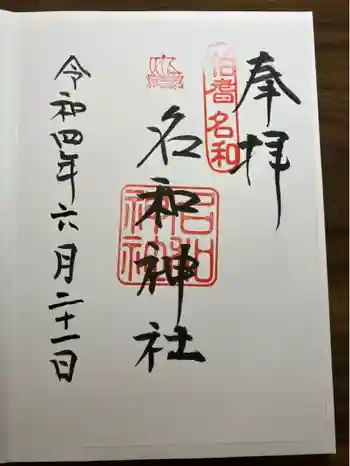 奉拝
伯耆名和
名和神社
名和神社
令和四年六月二十一日